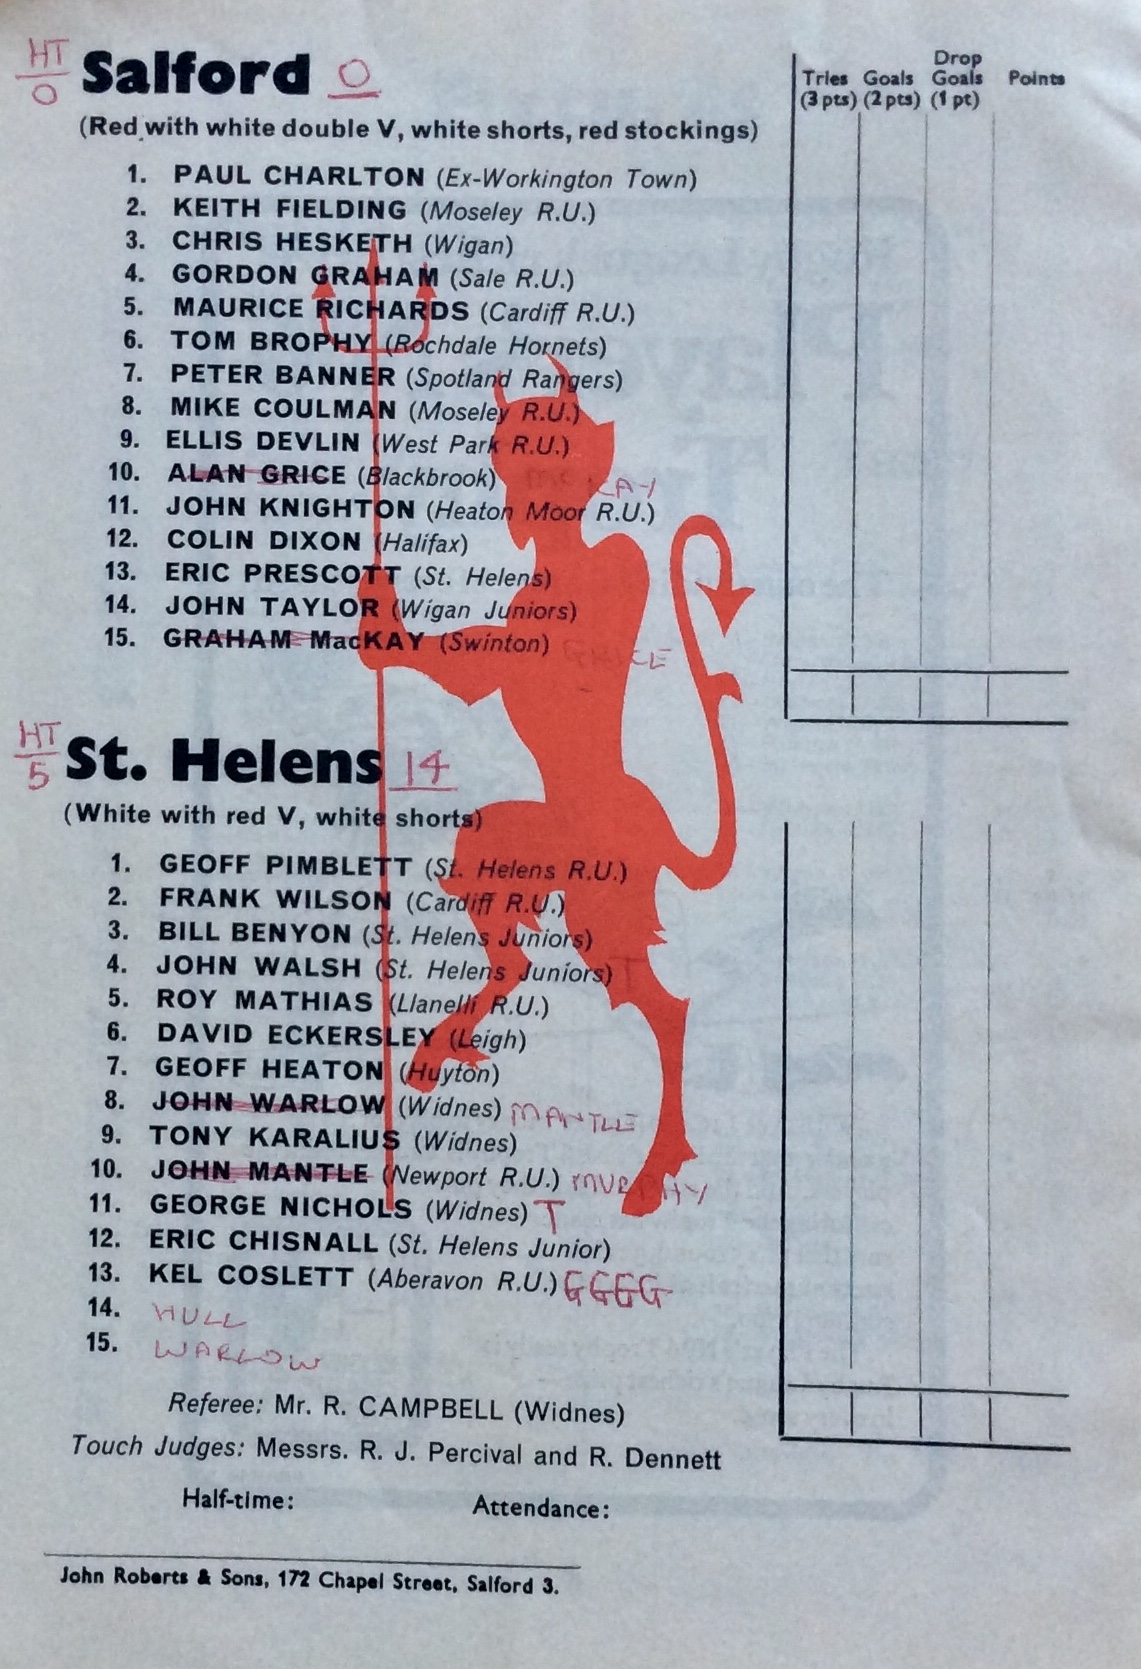 HT
0
Salford 0
(Red with white double V, white shorts, red stockings)
Tries (3 pts) Goals (2 pts) Drop Goals (1 pt) Points
1. PAUL CHARLTON (Ex-Workington Town)
2. KEITH FIELDING (Moseley R.U.)
3. CHRIS HESKETH (Wigan)
4. GORDON GRAHAM (Sale R.U.)
5. MAURICE RICHARDS (Cardiff R.U.)
6. TOM BROPHY (Rochdale Hornets)
7. PETER BANNER (Spotland Rangers)
8. MIKE COULMAN (Moseley R.U.)
9. ELLIS DEVLIN (West Park R.U.)
10. ALAN GRICE (Blackbrook) McKAY
11. JOHN KNIGHTON (Heaton Moor R.U.)
12. COLIN DIXON (Halifax)
13. ERIC PRESCOTT (St. Helens)
14. JOHN TAYLOR (Wigan Juniors)
15. GRAHAM MacKAY (Swinton) GRICE
HT
5
St. Helens 14
(White with red V, white shorts)
1. GEOFF PIMBLETT (St. Helens R.U.)
2. FRANK WILSON (Cardiff R.U.)
3. BILL BENYON (St. Helens Juniors)
4. JOHN WALSH (St. Helens Juniors) T
5. ROY MATHIAS (Llanelli R.U.)
6. DAVID ECKERSLEY (Leigh)
7. GEOFF HEATON (Huyton)
8. JOHN WARLOW (Widnes) MANTLE
9. TONY KARALIUS (Widnes)
10. JOHN MANTLE (Newport R.U.) MURPHY
11. GEORGE NICHOLS (Widnes) T
12. ERIC CHISNALL (St. Helens Junior)
13. KEL COSLETT (Aberavon R.U.) GGGG
14. HULL
15. WARLOW
Referee: Mr. R. CAMPBELL (Widnes)
Touch Judges: Messrs. R. J. Percival and R. Dennett
Half-time: Attendance:
John Roberts & Sons, 172 Chapel Street, Salford 3.